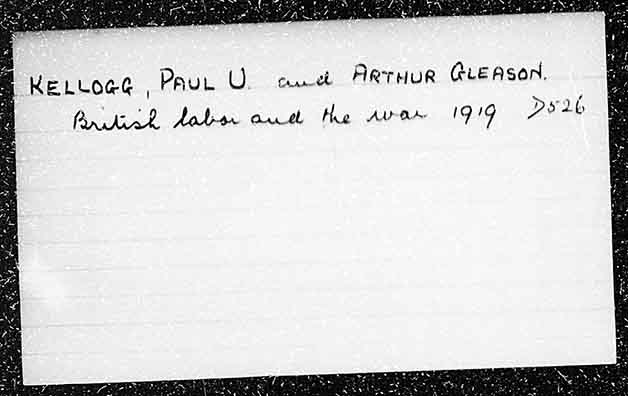 KELLOGG, PAUL U. and ARTHUR GLEASON.
British labor and the war 1919 D526